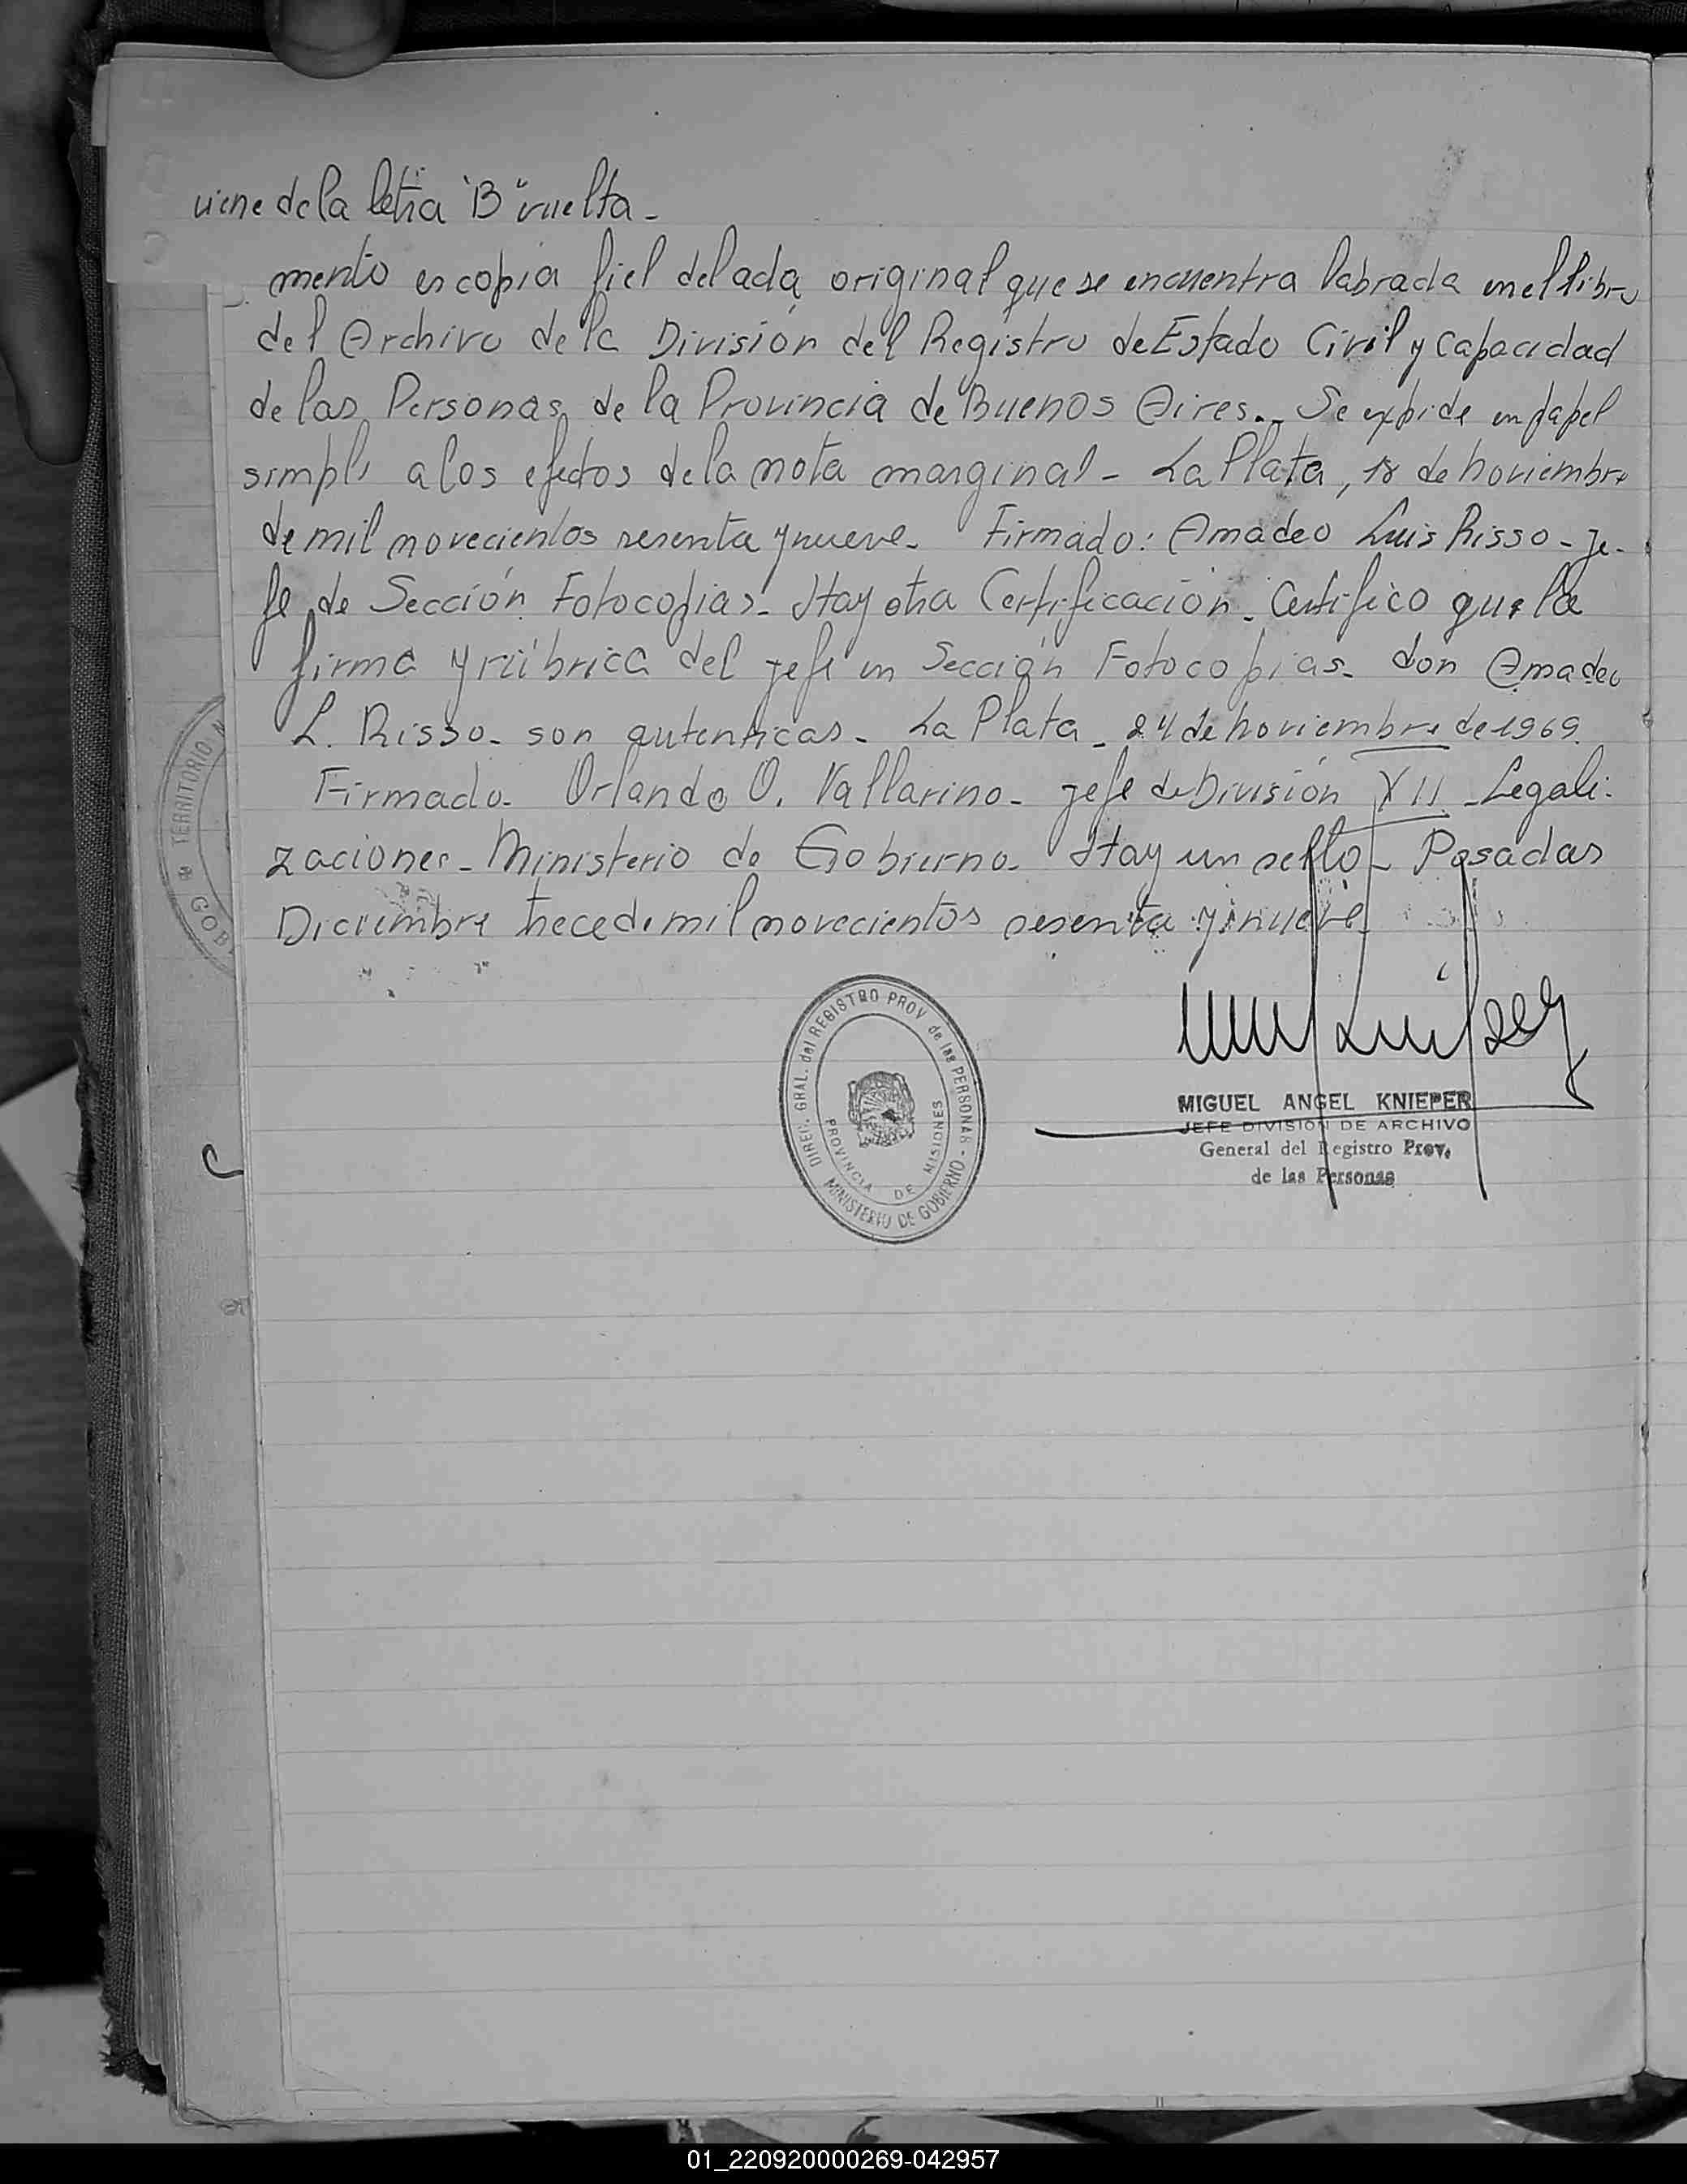 viene de la letra "B" vuelta -
mento es copia fiel del acta original que se encuentra labrada en el libro
del Archivo de la División del Registro de Estado Civil y Capacidad
de las Personas de la Provincia de Buenos Aires.- Se expide en papel
simple a los efectos de la nota marginal - La Plata, 18 de noviembre
de mil novecientos sesenta y nueve. Firmado: Amadeo Luis Risso - Je-
fe de Sección Fotocopias - Hay otra Certificación - Certifico que la
firma y rúbrica del jefe en Sección Fotocopias - don Amadeo
L. Risso - son autenticas - La Plata - 24 de noviembre de 1969.
Firmado - Orlando O. Vallarino - jefe de División XII - Legali-
zaciones - Ministerio de Gobierno - Hay un sello - Posadas
Diciembre trece de mil novecientos sesenta y nueve
TERRITORIO
GOB
DIREC. GRAL. del REGISTRO PROV. de las PERSONAS -
MINISTERIO DE GOBIERNO -
PROVINCIA DE MISIONES
MIGUEL ANGEL KNIEPER
JEFE DIVISION DE ARCHIVO
General del Registro Prov.
de las Personas
C
01_220920000269-042957